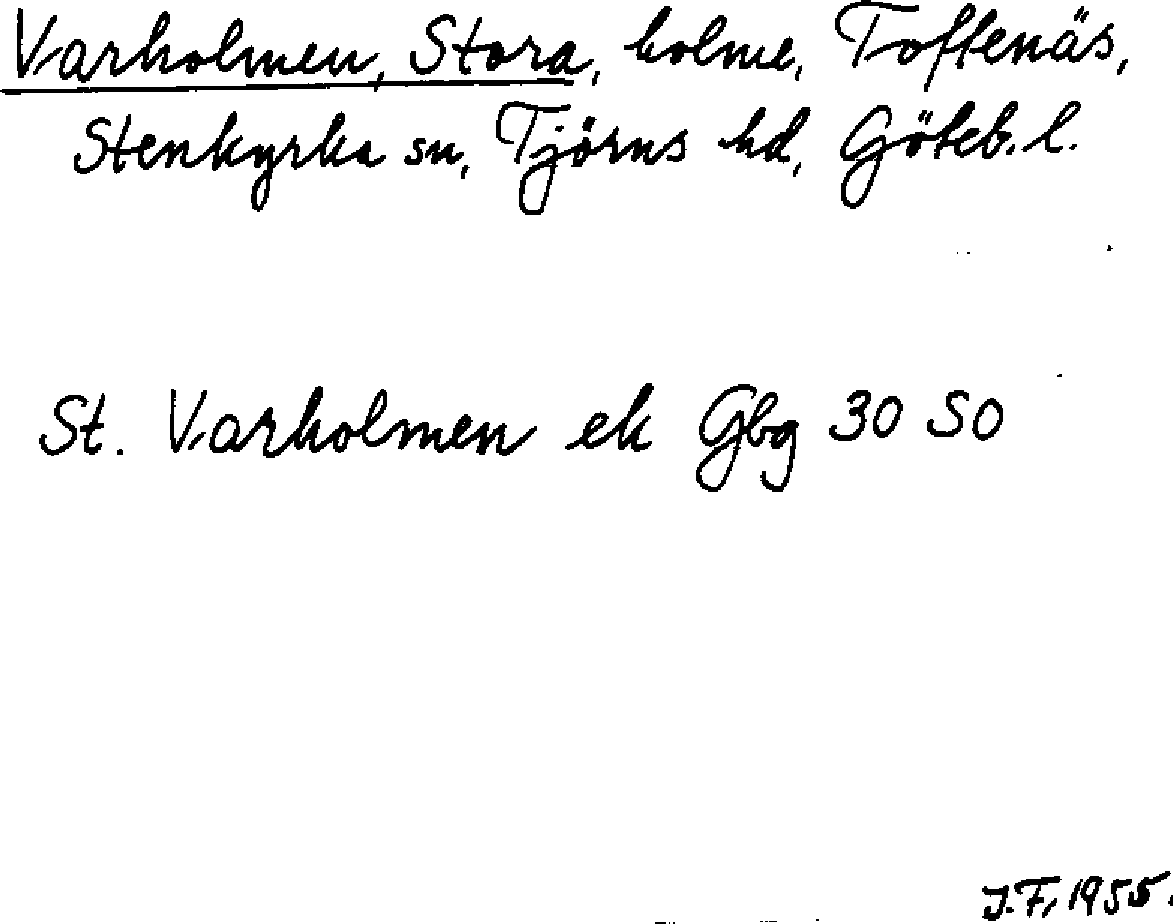 Varholmen, Stora, holme, Toftenäs,
Stenkyrka sn, Tjörns hd, Göteb. l.
St. Varholmen ek Gbg 30 SO
J.F, 1955.